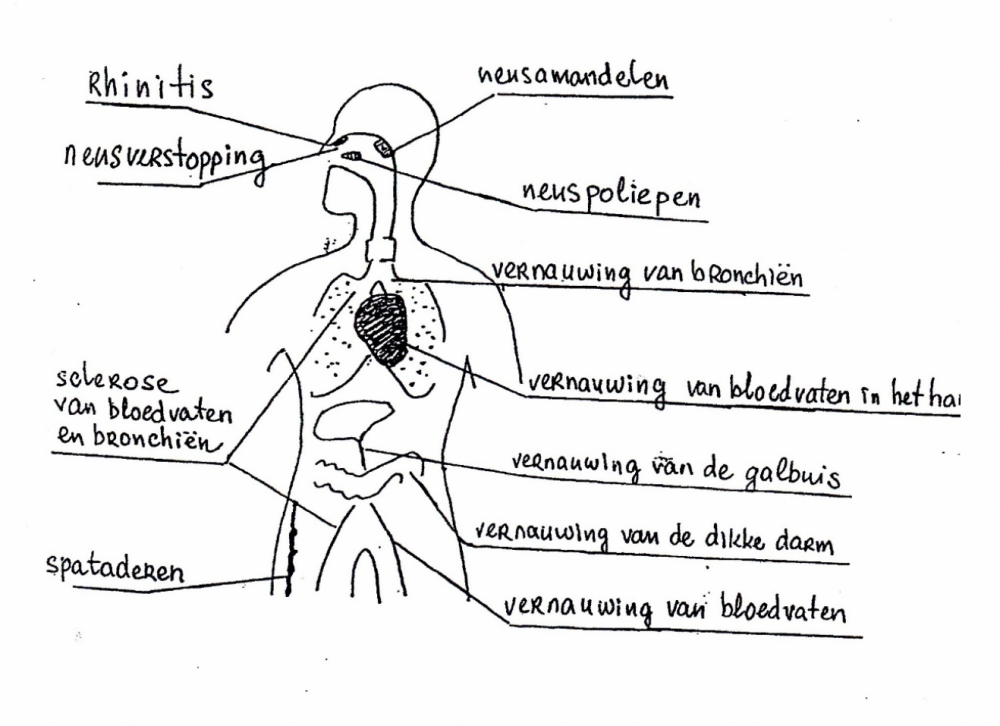 Rhinitis
neusamandelen
neusverstopping
neuspoliepen
vernauwing van bronchiën
sclerose
van bloedvaten
en bronchiën
vernauwing van bloedvaten in het har
vernauwing van de galbuis
vernauwing van de dikke darm
spataderen
vernauwing van bloedvaten